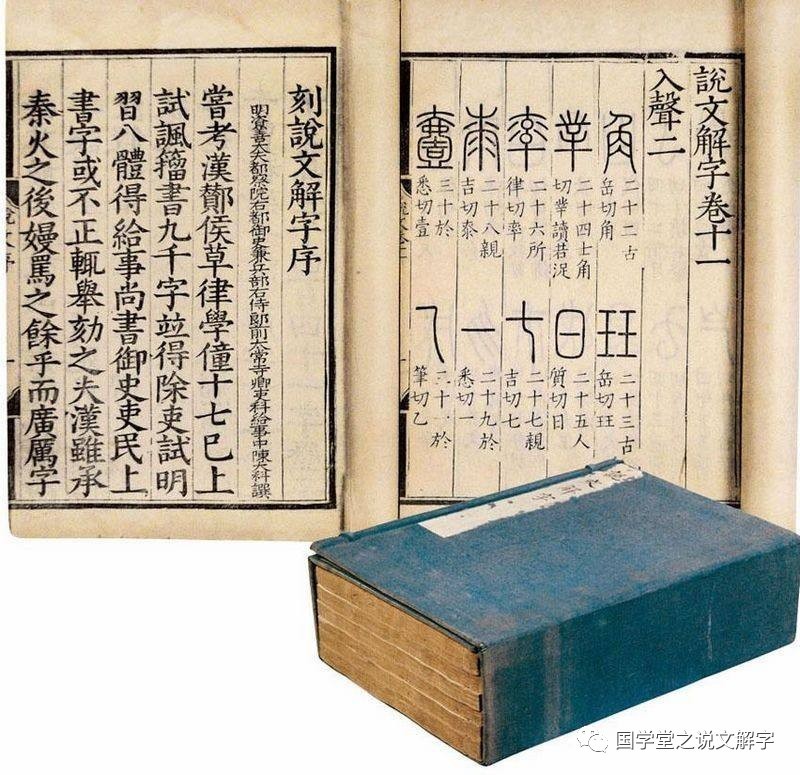 說文解字卷十一
入聲二
角
二十二古
岳切角
玨
二十三古
岳切玨
丵
二十四士角
切丵讀若浞
日
二十五人
質切日
率
二十六所
律切率
七
二十七親
吉切七
桼
二十八親
吉切桼
一
二十九於
悉切一
壹
三十於
悉切壹
乙
三十一於
筆切乙
刻說文解字序
明資善大夫都察院右都御史兼兵部右侍郎前太常寺卿吏科給事中陳大科譔
嘗考漢酇侯草律學僮十七巳上
試諷籀書九千字竝得除吏試明
習八體得給事尚書御史吏民上
書字或不正輒舉劾之夫漢雖承
秦火之後嫚罵之餘乎而廣厲字
国学堂之说文解字